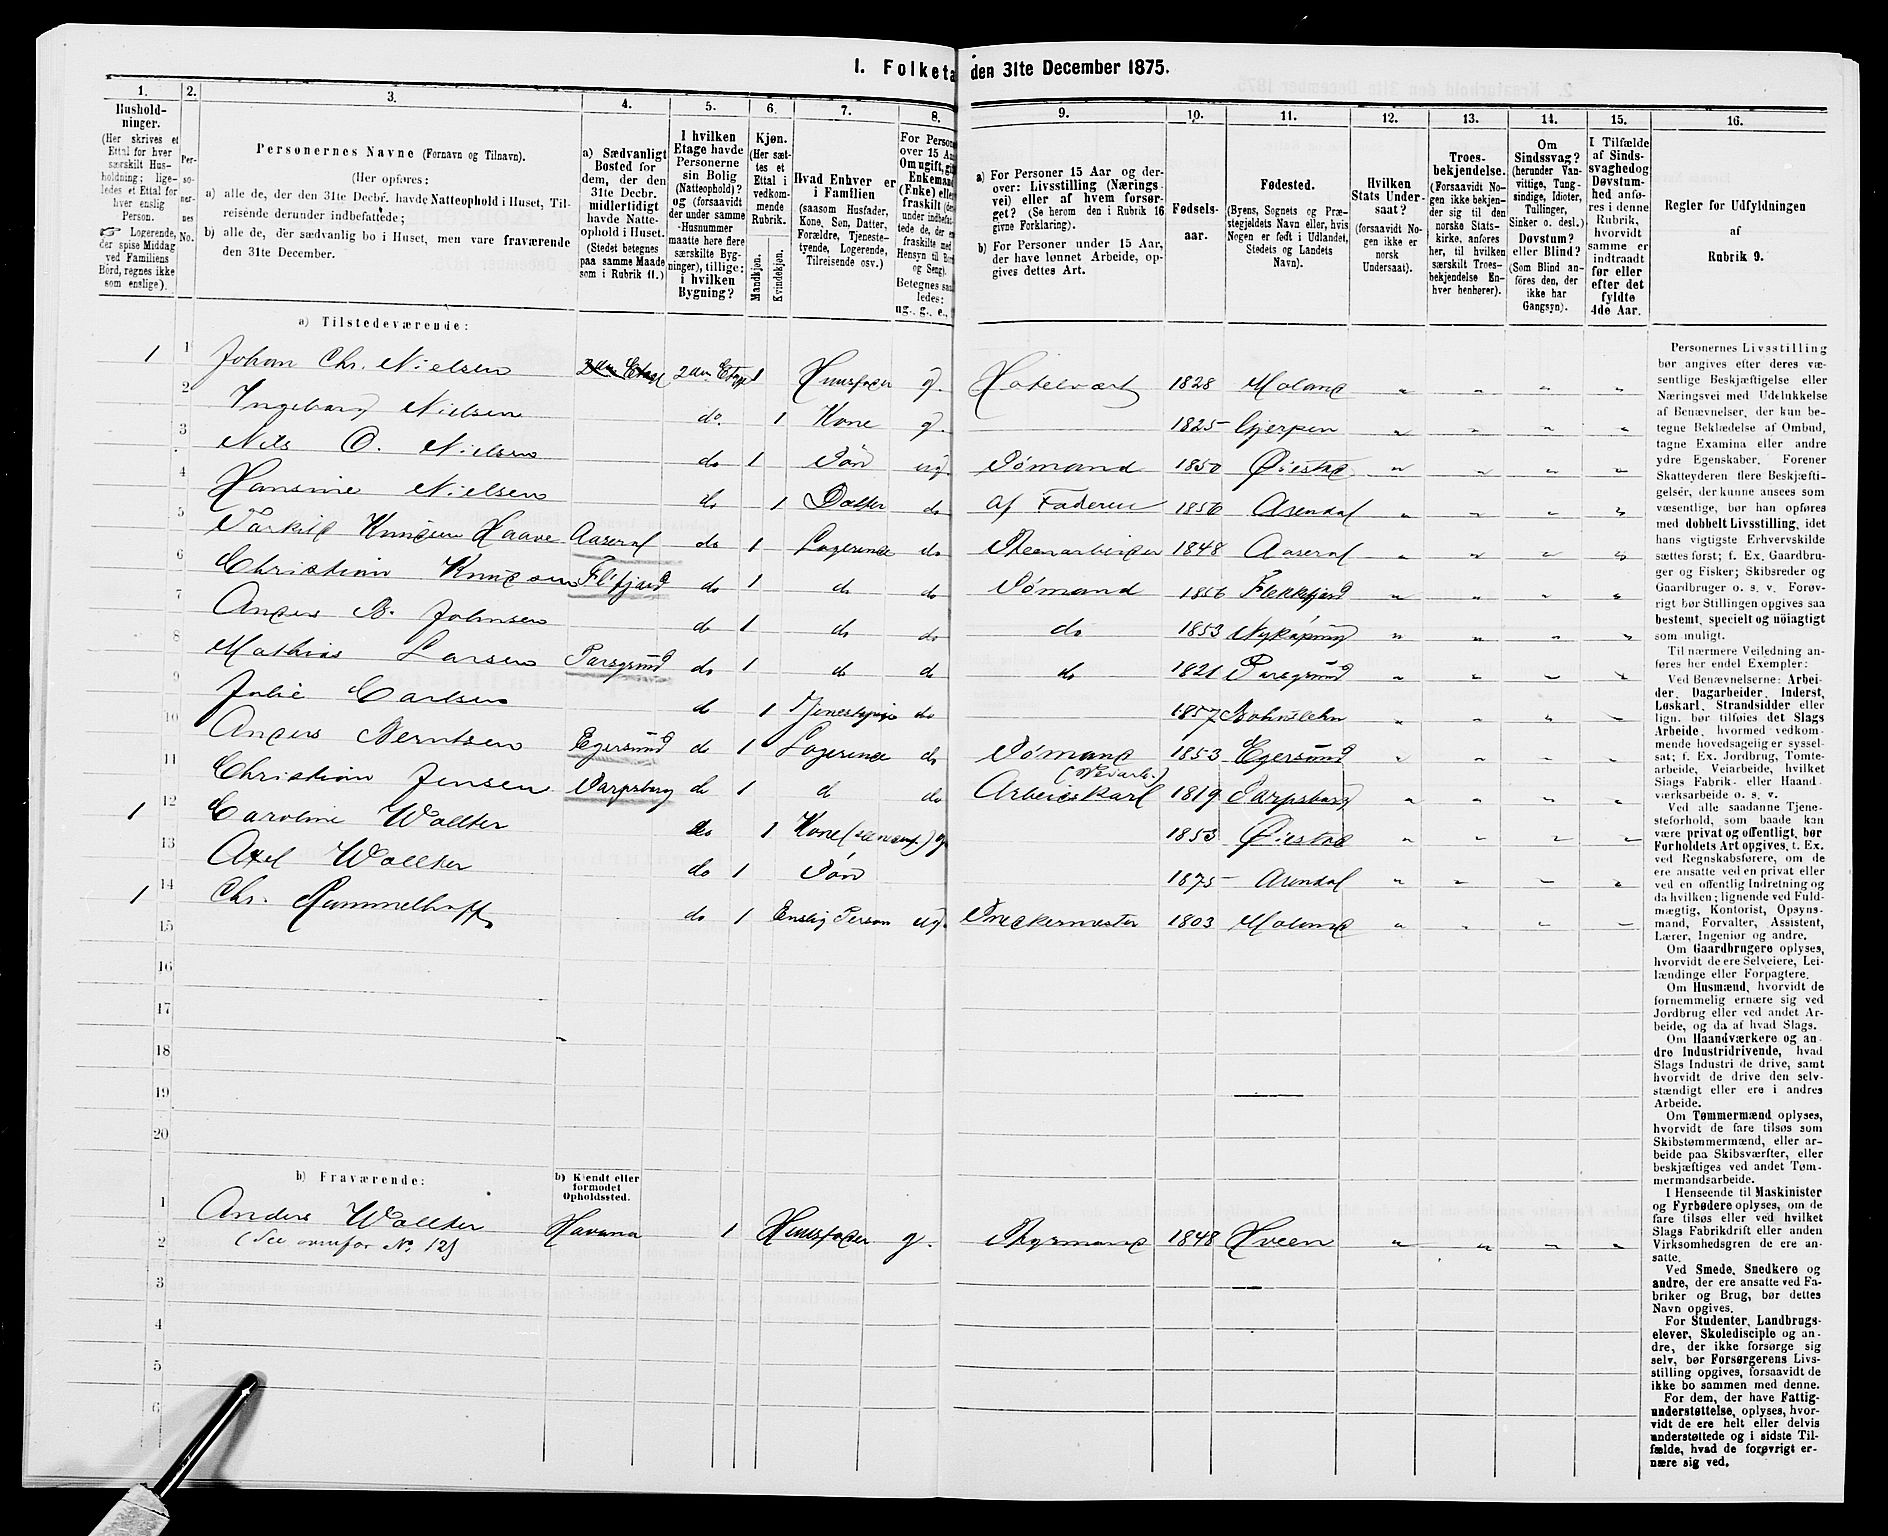 I. Folketa den 31te December 1875.
1. 2. 3. 4. 5. 6. 7. 8. 9. 10. 11. 12. 13. 14. 15. 16.
Hushold-
ninger.
(Her skrives et
Ettal for hver
særskilt Hus-
holdning; lige-
ledes et Ettal for
hver enslig
Person.
☞ Logerende,
der spise Middag
ved Familiens
Bord, regnes ikke
som enslige).
Per-
so-
ner-
nes
No.
Personernes Navne (Fornavn og Tilnavn).
(Her opføres:
a) alle de, der den 31te Decbr. havde Natteophold i Huset, Til-
reisende derunder indbefattede;
b) alle de, der sædvanlig bo i Huset, men vare fraværende
den 31te December.
a) Sædvanligt
Bosted for
dem, der den
31te Decbr.
midlertidigt
havde Natte-
ophold i Huset.
(Stedet betegnes
paa samme Maade
som i Rubrik 11.)
I hvilken
Etage havde
Personerne
sin Bolig
(Natteophold)?
og (forsaavidt
der under samme
Husnummer
maatte here flere
særskilte Byg-
ninger), tillige:
i hvilken
Bygning?
Kjøn.
(Her sæt-
tes et
Ettal i
vedkom-
mende
Rubrik.
Mandkjøn.
Kvindekjøn.
Hvad Enhver er
i Familien
(saasom Husfader,
Kone, Søn, Datter,
Forældre, Tjeneste-
tyende, Logerende,
Tilreisende osv.)
For Person
over 15 Aa
Om ugift, gi
Enkeman
(Enke) elle
fraskilt (de
under indbefat
tede de, der e
fraskilte med
Hensyn til Bo
og Seng).
Betegnes saa
ledes:
ug., g., e.,
a) For Personer 15 Aar og der-
over: Livsstilling (Nærings-
vei) eller af hvem forsør-
get? (Se herom den i Rubrik 16
givne Forklaring).
b) For Personer under 15 Aar,
der have lønnet Arbeide, op-
gives dettes Art.
Fødsels-
aar.
Fødested.
(Byens, Sognets og Præ-
stegjeldets Navn eller, hvis
Nogen er født i Udlandet,
Stedets og Landets
Navn).
Hvilken
Stats Under-
saat?
(forsaavidt No-
gen ikke er
norsk
Undersaat).
Troes-
bekjendelse.
(Forsaavidt No-
gen ikke bekjen-
der sig til den
norske Stats-
kirke, anføres
her, til hvilken
særskilt Troes-
bekjendelse En-
hver henhører).
Om
Sindssvag?
(herunder Van-
vittige, Tung-
sindige, Idioter,
Tullinger,
Sinker o. desl.)
Døvstum?
eller Blind?
(Som Blind an-
føres den, der
ikke har
Gangsyn).
I Tilfælde
af Sinds-
svaghedog
Døvstum-
hed anfø-
res i denne
Rubrik,
hvorvidt
samme er
indtraadt
før eller
efter det
fyldte
4de Aar.
Regler for Udfyldningen
af
Rubrik 9.
a) Tilstedeværende:
1 1 Johan Chr. Nielsen 2den Etage 2den Etage 1 Huusfader g. Hotelvært 1828 Moland " " " "
2 Ingeborg Nielsen do. 1 Kone g. 1825 Gjerpen " " " "
3 Nils O. Nielsen do 1 Søn ug Sømand 1850 Øiestad " " " "
4 Hansine Nielsen do 1 Datter do af Faderen 1856 Arendal " " " "
5 Tarkild Knudsen Haave Aaseral do 1 Logerende do Steenarbeider 1848 Aaseral " " " "
6 Christian Knudsen Flfjord do 1 do do Sømand 1856 Flekkefjord " " " "
7 Anders B. Johnsen do 1 do do do 1853 Nykøping " " " "
8 Mathias Larsen Porsgrund do 1 do do do 1821 Porsgrund " " " "
9 Julie Carlsen do 1 Tjenestepige do 1857 Bohuslehn " " " "
10 Anders Berntsen Egersund do 1 Logerende do Sømand 1853 Egersund " " " "
11 Christian Jensen Sarpsborg do 1 do do Arbeidskarl (Veiarb.) 1819 Sarpsborg " " " "
1 12 Caroline Wallter do 1 Kone g 1853 Øiestad " " " "
13 Axel Wallter do 1 Søn 1875 Arendal " " " "
1 14 Chr. Rummelhoff do 1 Enslig Person ug. Snedkermester 1803 Moland " " " "
15
16
17
18
19
20
b) Fraværende:
b) Kjendt eller
formodet
Opholdssted.
1 Anders Wallter Havana 1 Huusfader g. Styrmand 1848 Hveen " " " "
2 (See ovenfor No. 12)
3
4
5
6
Personernes Livsstilling
bør angives efter deres væ-
sentlige Beskjæftigelse eller
Næringsvei med Udelukkelse
af Benævnelser, der kun be-
tegne Beklædelse af Ombud,
tagne Examina eller andre
ydre Egenskaber. Forener
Skatteyderen flere Beskjæfti-
gelser, der kunne ansees som
væsentlige, bør han opføres
med dobbelt Livsstilling, idet
hans vigtigste Erhvervskilde
sættes først; f. Ex. Gaardbru-
ger og Fisker; Skibsreder og
Gaardbruger o. s. v. Forøv-
rigt bør Stillingen opgives saa
bestemt, specielt og nöiagtigt
som muligt.
Til nærmere Veiledning an-
føres her endel Exempler:
Ved Benævnelserne: Arbei-
der, Dagarbeider, Inderst,
Løskarl, Strandsidder eller
lign. bør tilføies det Slags
Arbeide, hvormed vedkom-
mende hovedsagelig er syssel-
sat; f. Ex. Jordbrug, Tomte-
arbeide, Veiarbeide, hvilket
Slags Fabrik- eller Haand-
værksarbeide o. s. v.
Ved alle saadanne Tjene-
steforhold, som baade kan
være privat og offentligt, bør
Forholdets Art opgives, t. Ex.
ved Regnskabsførere, om de
ere ansatte ved en privat eller
ved en offentlig Indretning og
da hvilken; lignende ved Fuld-
mægtig, Kontorist, Opsyns-
mand, Forvalter, Assistent,
Lærer, Ingeniør og andre.
Om Gaardbrugere oplyses,
hvorvidt de ere Selveiere, Lei-
lændinge eller Forpagtere.
Om Husmænd, hvorvidt de
fornemmelig ernære sig ved
Jordbrug eller ved andet Ar-
beide, og da af hvad Slags.
Om Haandværkere og an-
dre Industridrivende, hvad
Slags Industri de drive, samt
hvorvidt de drive den selv-
stændigt eller ere i andres
Arbeide.
Om Tømmermænd oplyses,
hvorvidt de fare tilsøs som
Skibstømmermænd, eller ar-
beide paa Skibsværfter, eller
beskjæftiges ved andet Tøm-
mermandsarbeide.
I Henseende til Maskinister
og Fyrbødere oplyses, om de
fare tilsøs eller ved hvilket
Slags Fabrikdrift eller anden
Virksomhedsgren de ere an-
satte.
Ved Smede, Snedkere og
andre, der ere ansatte ved Fa-
briker og Brug, bør dettes
Navn opgives.
For Studenter, Landbrugs-
elever, Skoledisciple og an-
dre, der ikke forsørge sig
selv, bør Forsørgerens Livs-
stilling opgives, forsaavidt de
ikke bo sammen med denne.
For dem, der have Fattig-
understøttelse, oplyses, hvor-
vidt de ere helt eller delvis
understøttede og i sidste Til-
fælde, hvad de forøvrigt er-
nære sig ved.